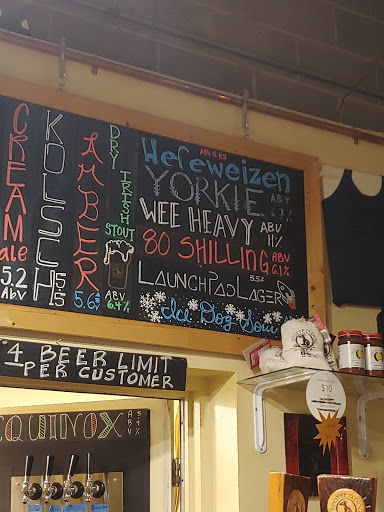 CREAM
ale
5.2
ABV
KOLSCH
5.5
AMBER
5.6
DRY IRISH
STOUT
ABV
6.4%
ABV 5.8%
Hefeweizen
YORKIE
ABV
WEE HEAVY
ABV
11%
80 SHILLING
ABV
6.1%
5.5%
LAUNCHPAD LAGER
Ice Dog Sour
4 BEER LIMIT
PER CUSTOMER
EQUINOX
ABV
$10